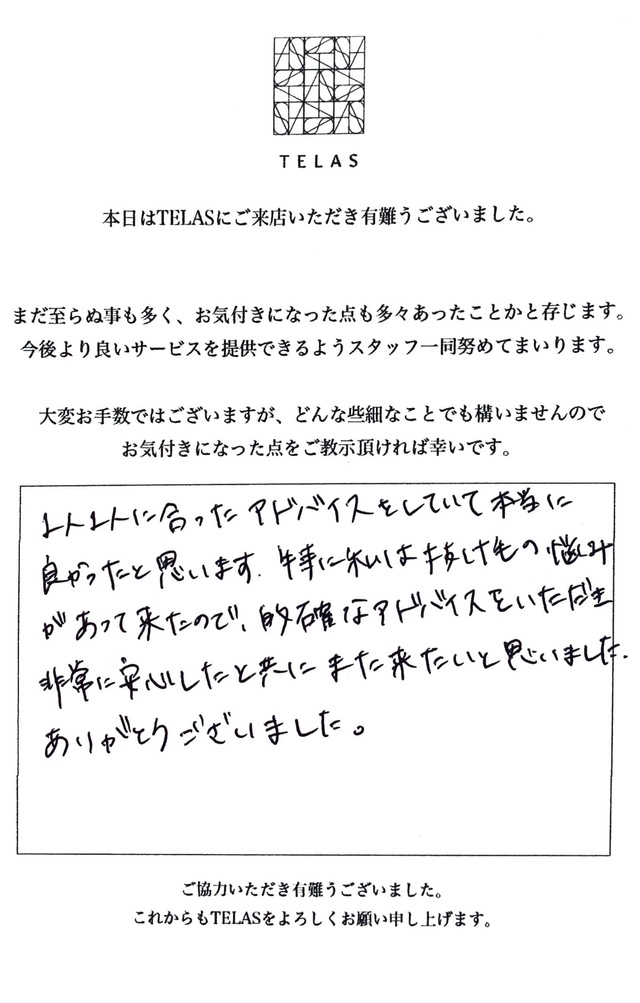 TELAS
本日はTELASにご来店いただき有難うございました。
まだ至らぬ事も多く、お気付きになった点も多々あったことかと存じます。
今後より良いサービスを提供できるようスタッフ一同努めてまいります。
大変お手数ではございますが、どんな些細なことでも構いませんので
お気付きになった点をご教示頂ければ幸いです。
1人1人に合ったアドバイスをしていて本当に
良かったと思います。特に私は抜け毛の悩み
があって来たので、的確なアドバイスをいただき
非常に安心したと共にまた来たいと思いました。
ありがとうございました。
ご協力いただき有難うございました。
これからもTELASをよろしくお願い申し上げます。